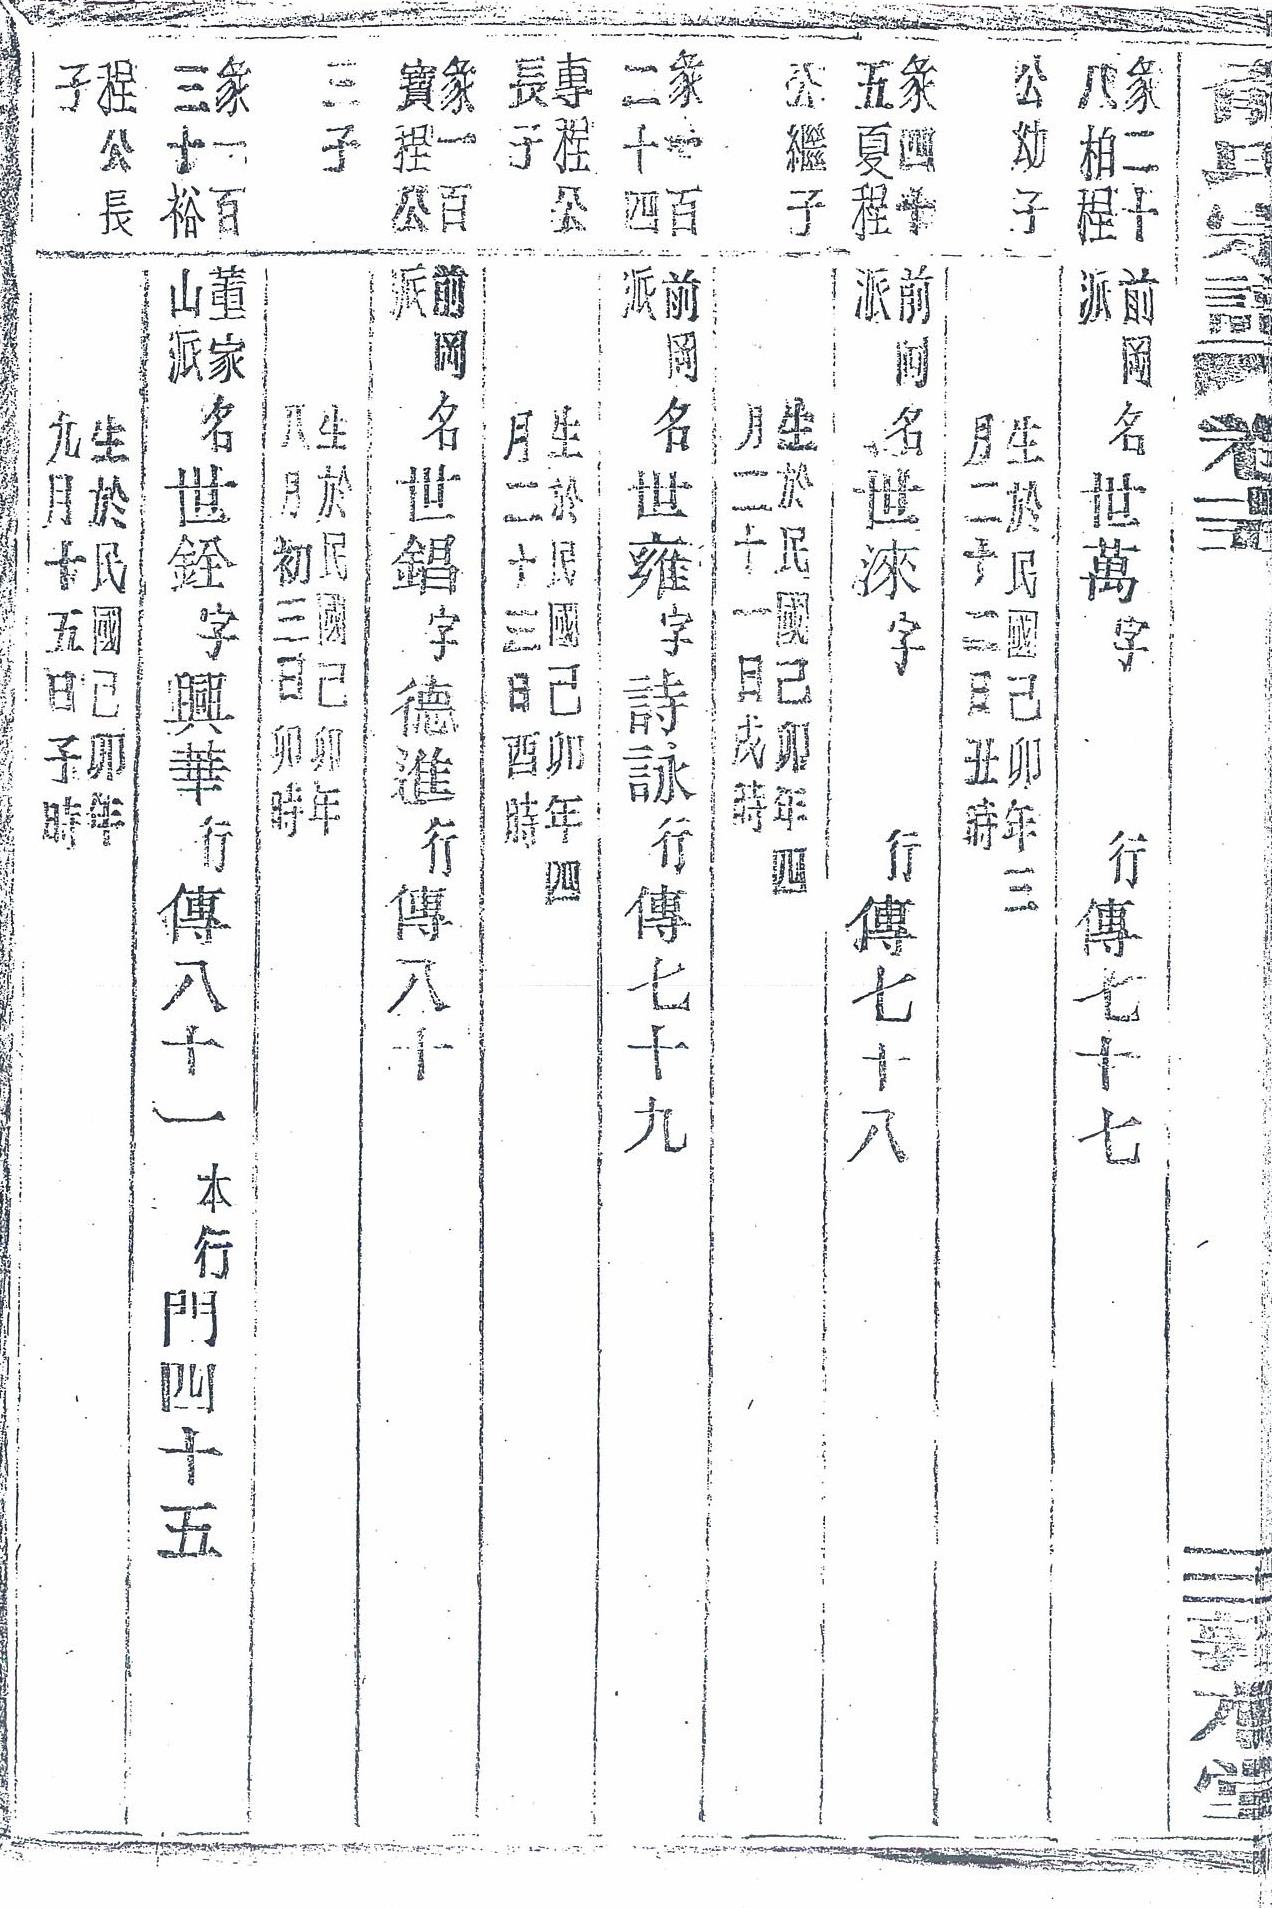 氏宗譜 卷三
象二十
八柏程
公幼子
前岡
派
名世萬字 行傳七十七
生於民國己卯年三
月二十二日丑時
象四十
五夏程
公繼子
前岡
派
名世淶字 行傳七十八
生於民國己卯年四
月二十一日戌時
象一百
二十四
專程公
長子
前岡
派
名世雍字詩詠行傳七十九
生於民國己卯年四
月二十三日酉時
象一百
寶程公
三子
前岡
派
名世錩字德進行傳八十
生於民國己卯年
八月初三日卯時
象一百
三十裕
程公長
子
董家
山派
名世銓字興華行傳八十一 本行門四十五
生於民國己卯年
九月十五日子時